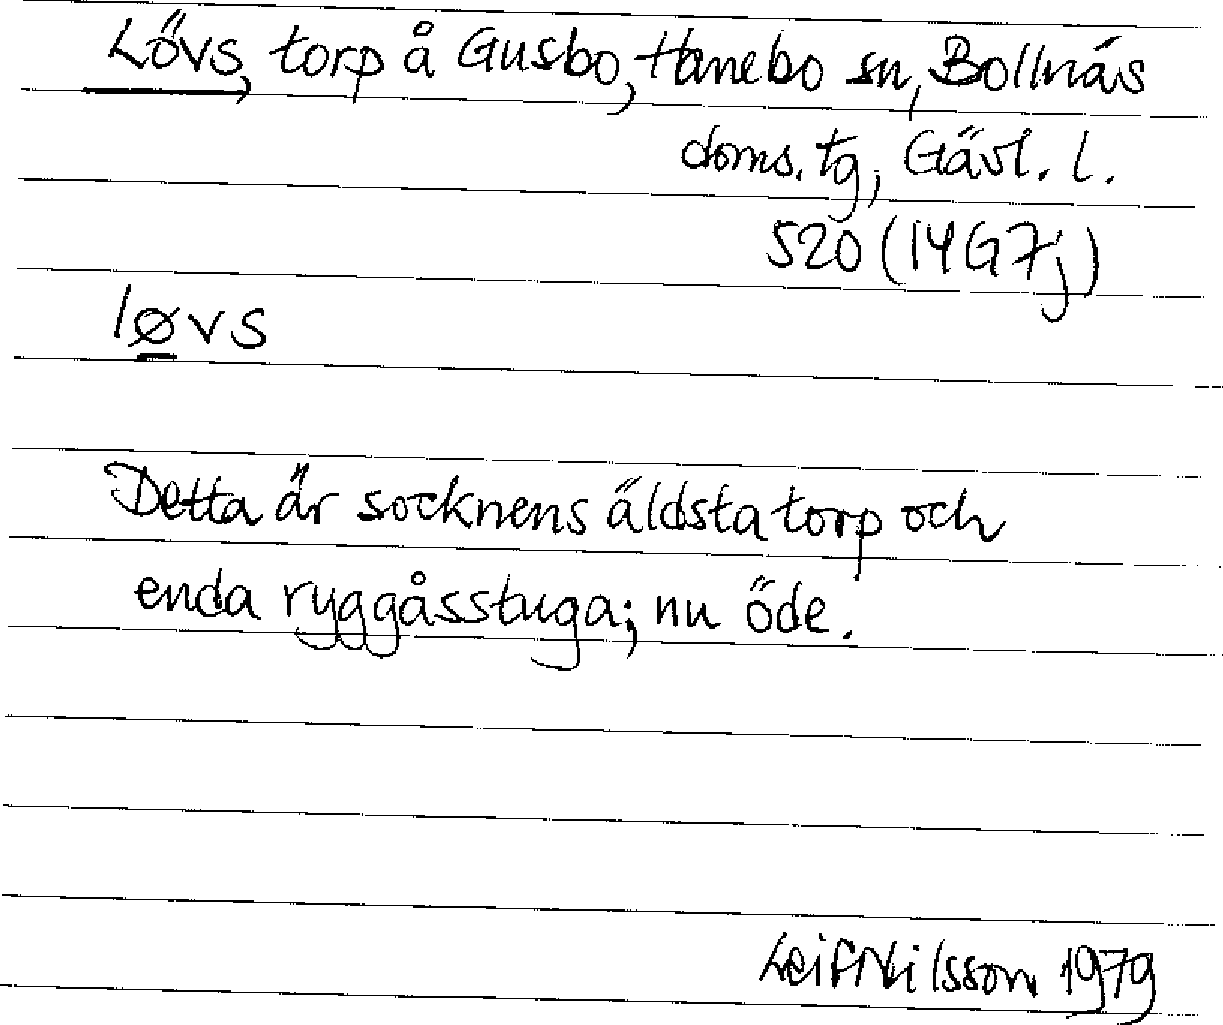 Lövs, torp å Gusbo, Hanebo sn, Bollnäs
doms. tg, Gävl. l.
520 (14G7j)
løvs
Detta är socknens äldsta torp och
enda ryggåsstuga; nu öde.
Leif Nilsson 1979